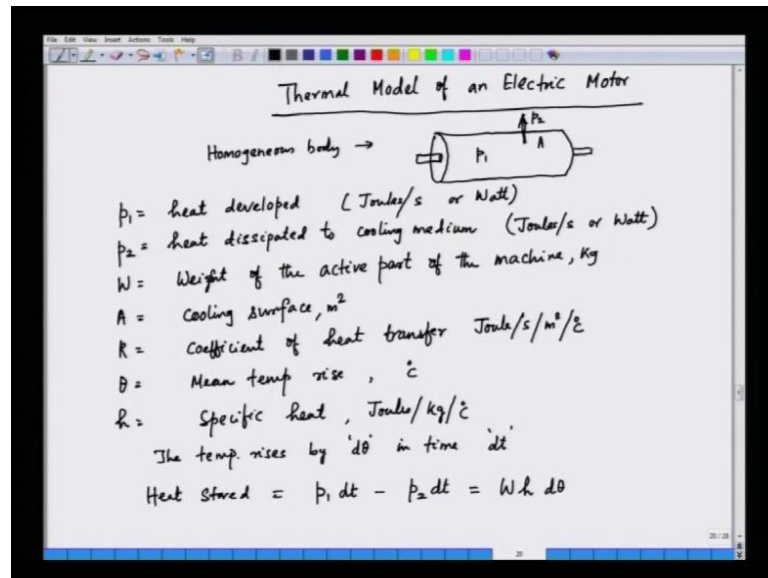 File Edit View Insert Actions Tools Help
Thermal Model of an Electric Motor
Homogeneous body → p₁ p₂ A
p₁ = heat developed (Joules/s or Watt)
p₂ = heat dissipated to cooling medium (Joules/s or Watt)
W = Weight of the active part of the machine, Kg
A = Cooling surface, m²
R = Coefficient of heat transfer Joule/s/m²/°c
θ = Mean temp rise, °c
h = Specific heat, Joules/kg/°c
The temp. rises by 'dθ' in time 'dt'
Heat Stored = p₁ dt - p₂ dt = W h dθ
20/28
20